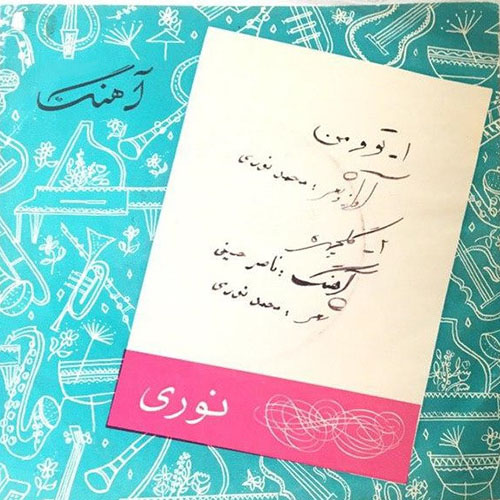 آهنگ
۱- تو و من
آواز و شعر: محمد نوری
۲- گلچهره
آهنگ: ناصر حسینی
شعر: محمد نوری
نوری